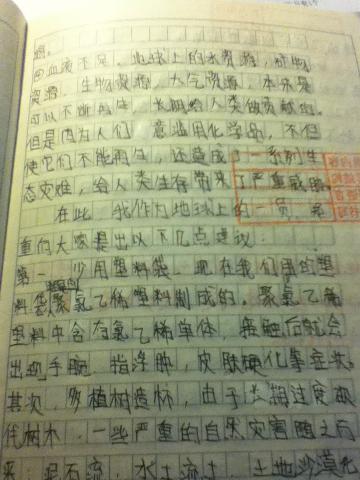 源。
的血液不足。地球上的水资源,植物
资源,生物资源,大气资源,本来是
可以不断再生,长期给人类做贡献的。
但是因为人们 意滥用化学品,不但
使它们不能再生,还造成了一系列生
态灾难,给人类生存带来了严重威胁。
在此,我作为地球上的一员,郑
重向大家提出以下几点建议:
第一,少用塑料袋。现在我们用的塑
料袋 聚氯乙烯塑料制成的。聚氯乙烯
塑料中含有氯乙稀单体,接触后就会
出现手腕,指浮肿,皮肤硬化等症状。
其次,多植树造林,由于长期过度砍
伐树木,一些严重的自然灾害随之而
来:泥石流,水土流土,土地沙漠化